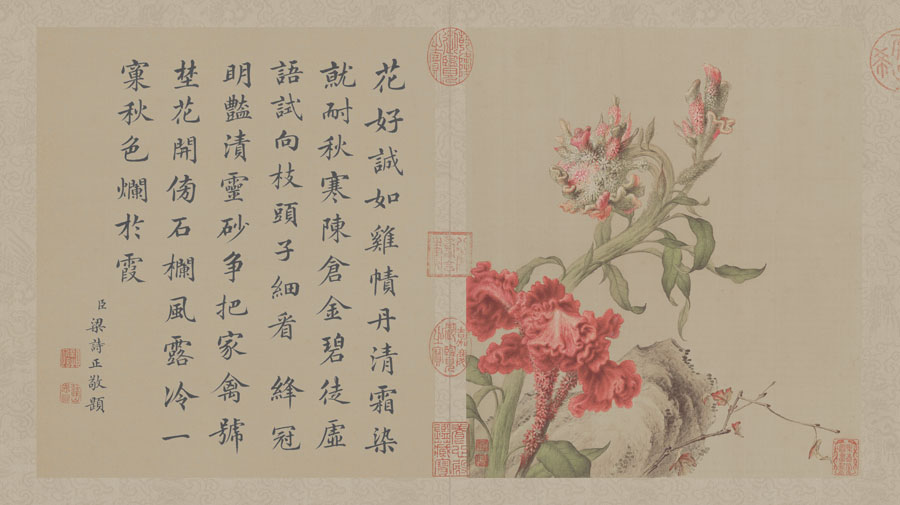 花好誠如雞幘丹清霜染
就耐秋寒陳倉金碧徒虛
語試向枝頭子細看 絳冠
明豔漬靈砂争把家禽號
埜花開傍石欄風露冷一
窠秋色爛於霞
臣梁詩正敬題